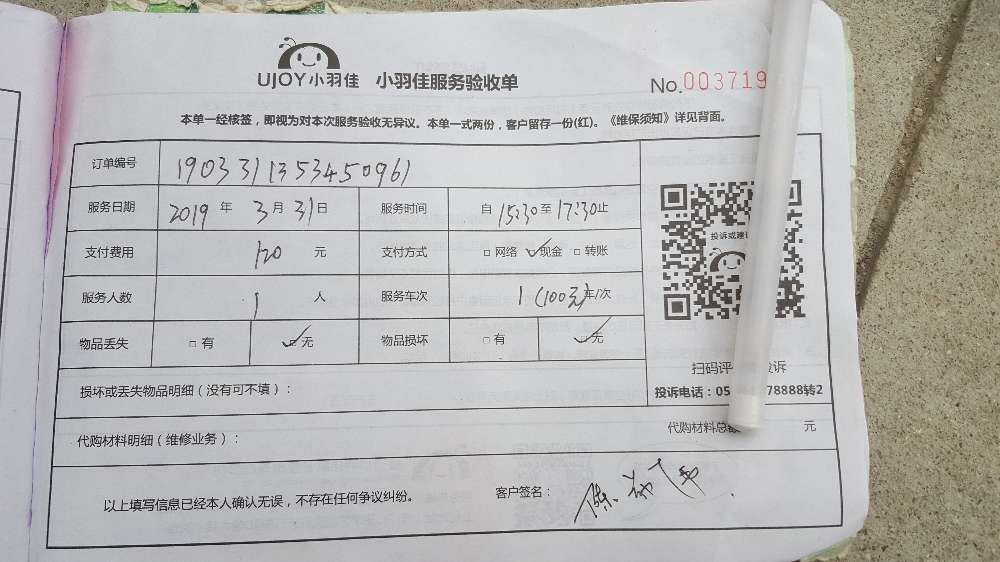 UJOY小羽佳 小羽佳服务验收单 No.003719
本单一经核签，即视为对本次服务验收无异议。本单一式两份，客户留存一份(红)。《维保须知》详见背面。
订单编号 1903311353450961
服务日期 2019 年 3 月 31 日 服务时间 自 15:30 至 17:30 止
支付费用 120 元 支付方式 □ 网络 ✓现金 □ 转账
投诉或建
服务人数 1 人 服务车次 1 (100元) 车/次
物品丢失 □ 有 ✓无 物品损坏 □ 有 ✓无
扫码评 投诉
损坏或丢失物品明细（没有可不填）： 投诉电话：05 78888转2
代购材料明细（维修业务）： 代购材料总 元
以上填写信息已经本人确认无误，不存在任何争议纠纷。 客户签名：